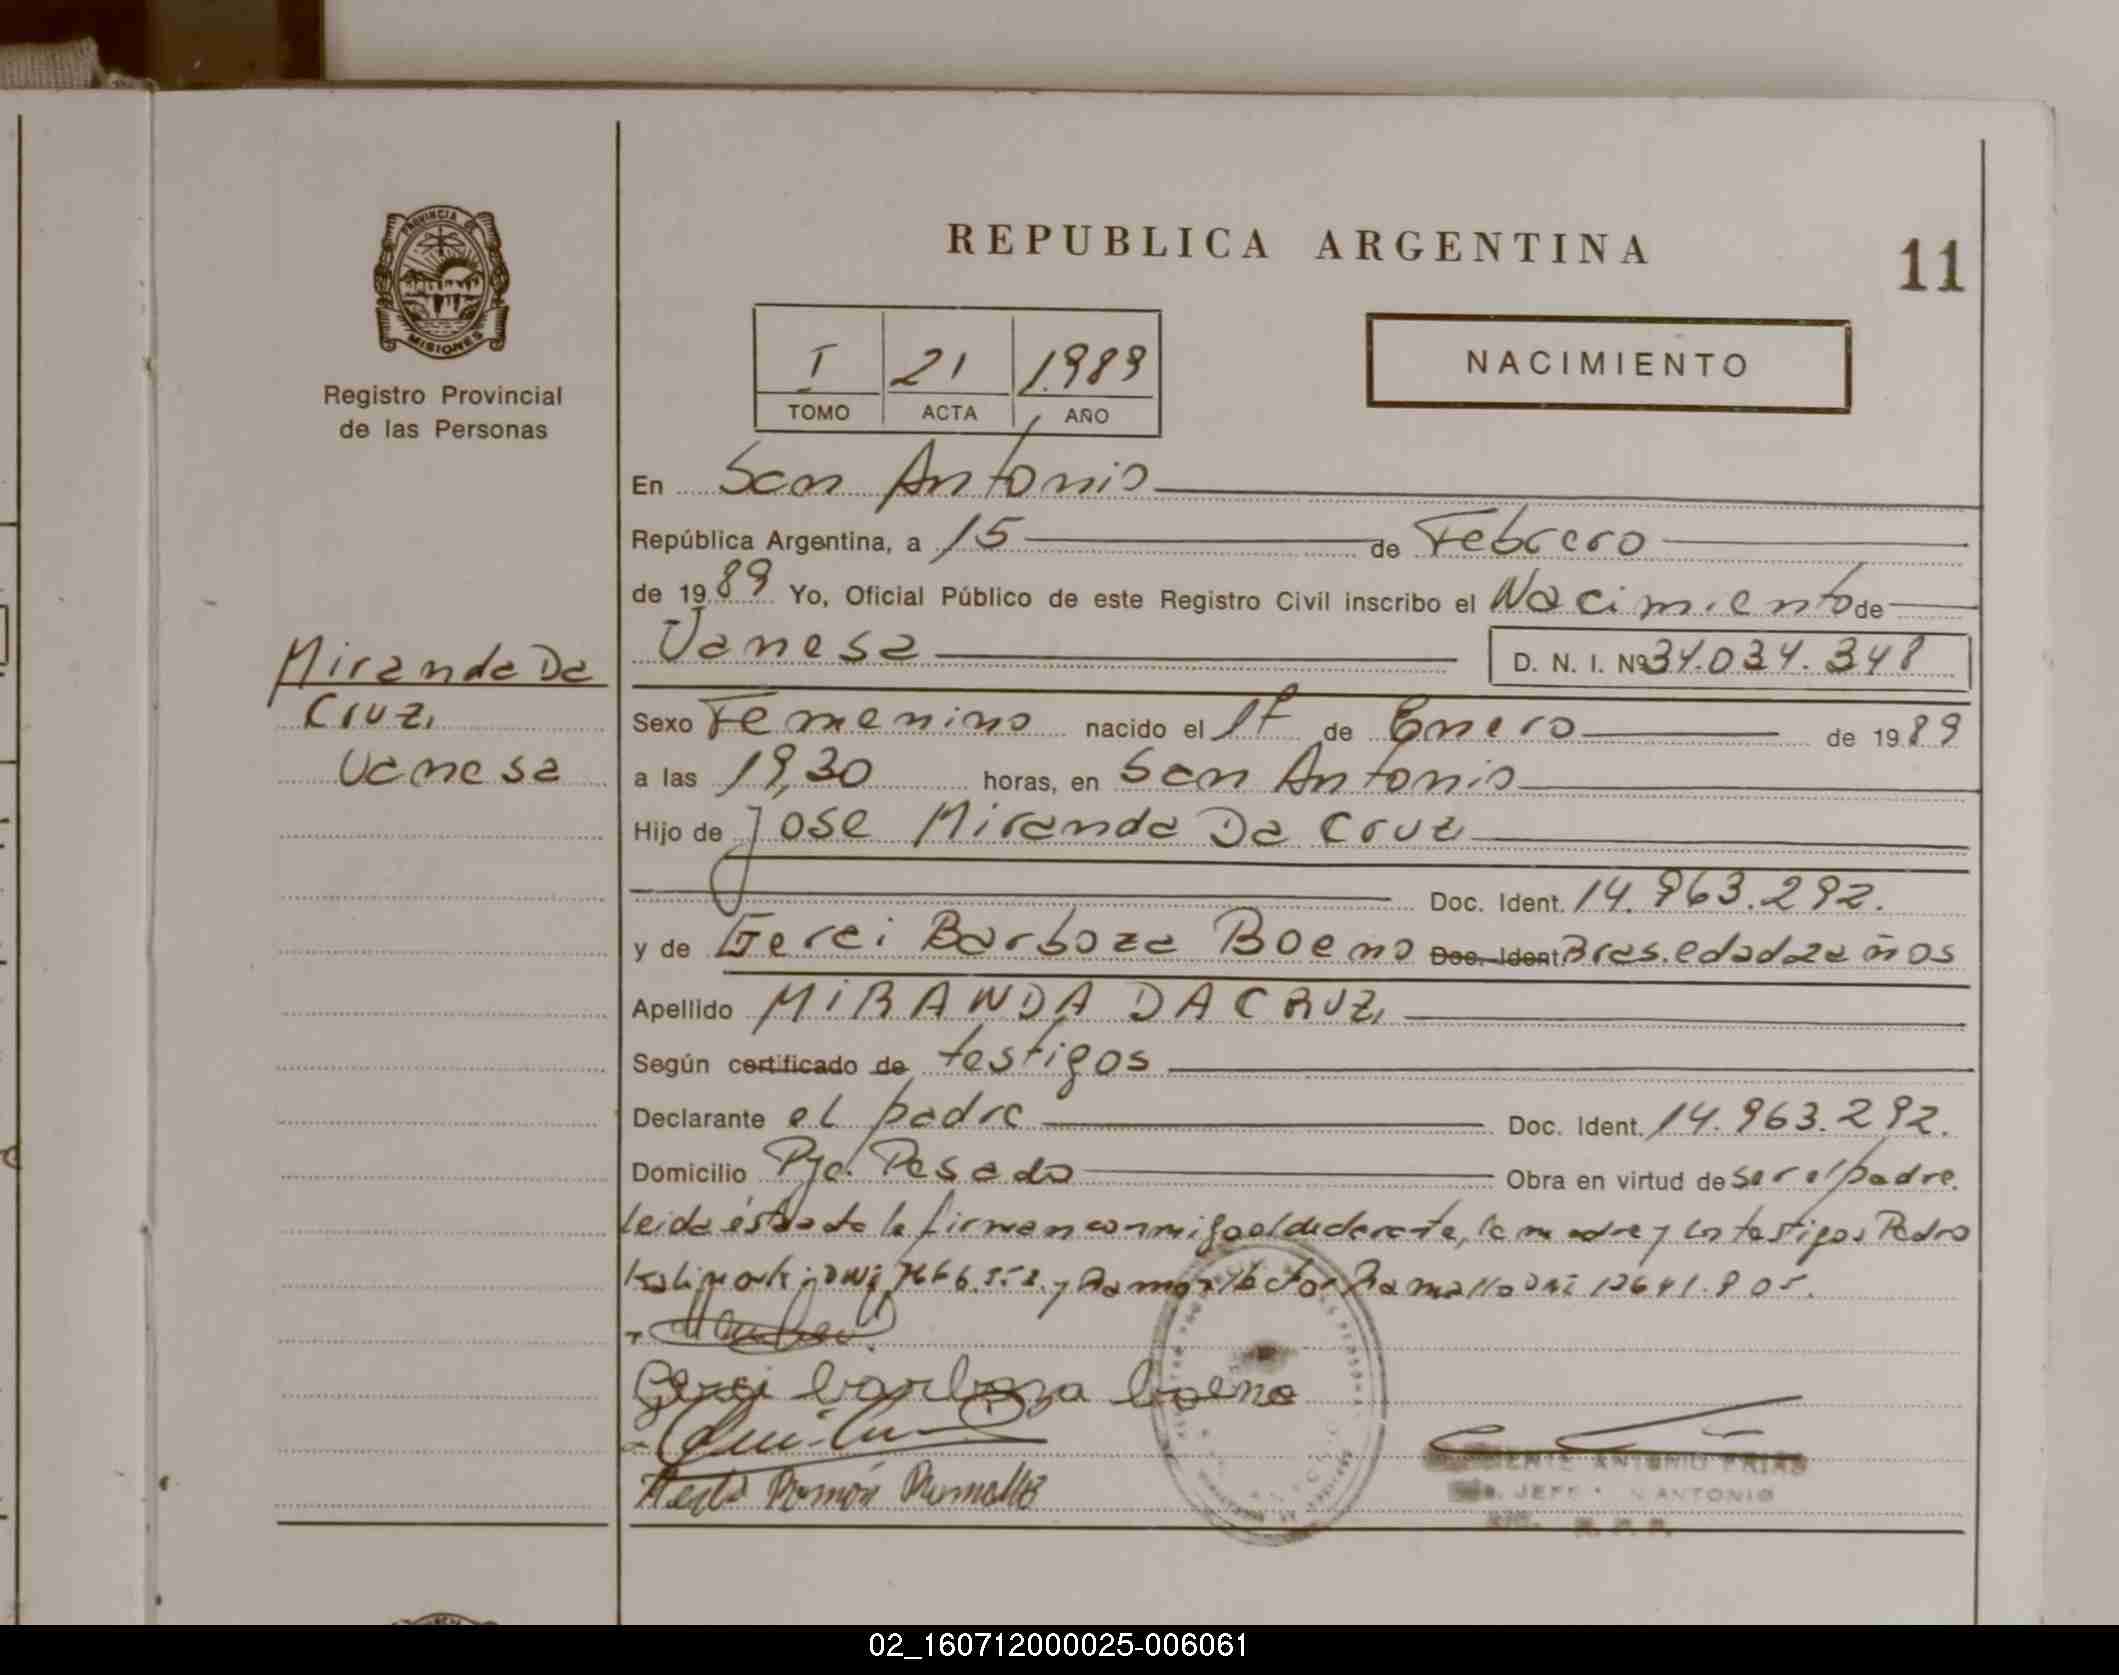 PROVINCIA DE
MISIONES
Registro Provincial
de las Personas
Miranda Da
Cruz,
Vanesa
REPUBLICA ARGENTINA
11
I 21 1989
TOMO ACTA AÑO
NACIMIENTO
En San Antonio
República Argentina, a 15 de Febrero
de 1989 Yo, Oficial Público de este Registro Civil inscribo el Nacimiento de
Vanesa D. N. I. Nº 34.034.348
Sexo Femenino nacido el 17 de Enero de 1989
a las 19,30 horas, en San Antonio
Hijo de Jose Miranda Da Cruz
Doc. Ident. 14.963.292.
y de Gerei Barboza Boeno Doc. Ident. Bras. edad 22 años
Apellido MIRANDA DA CRUZ,
Según certificado de testigos
Declarante el padre Doc. Ident. 14.963.292.
Domicilio Pje. Posado Obra en virtud de ser el padre.
leida ésta la firman conmigo el declarante, la madre y los testigos Pedro
y Ramon Hector Ramallo DNI 12641.805.
Gerei barboza boeno
Hector Ramón Ramallo
ANTONIO FRIAS
JEFE ANTONIO
02_160712000025-006061